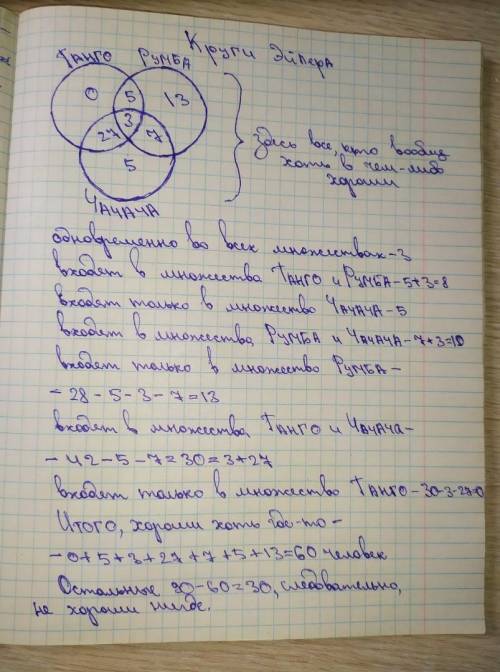 Круги Эйлера
ТАНГО РУМБА
0 5 13
3
27 7
5
ЧАЧАЧА
Здесь все, кто вообще
хоть в чем-либо
хороши
одновременно во всех множествах-3
входят в множества ТАНГО и РУМБА-5+3=8
входят только в множество ЧАЧАЧА-5
входят в множества РУМБА и ЧАЧАЧА-7+3=10
входят только в множество РУМБА-
-28-5-3-7=13
входят в множества ТАНГО и ЧАЧАЧА-
-42-5-7=30=3+27
входят только в множество ТАНГО-30-3-27=0
Итого, хороши хоть где-то-
-0+5+3+27+7+5+13=60 человек
Остальные 90-60=30, следовательно,
не хороши нигде.